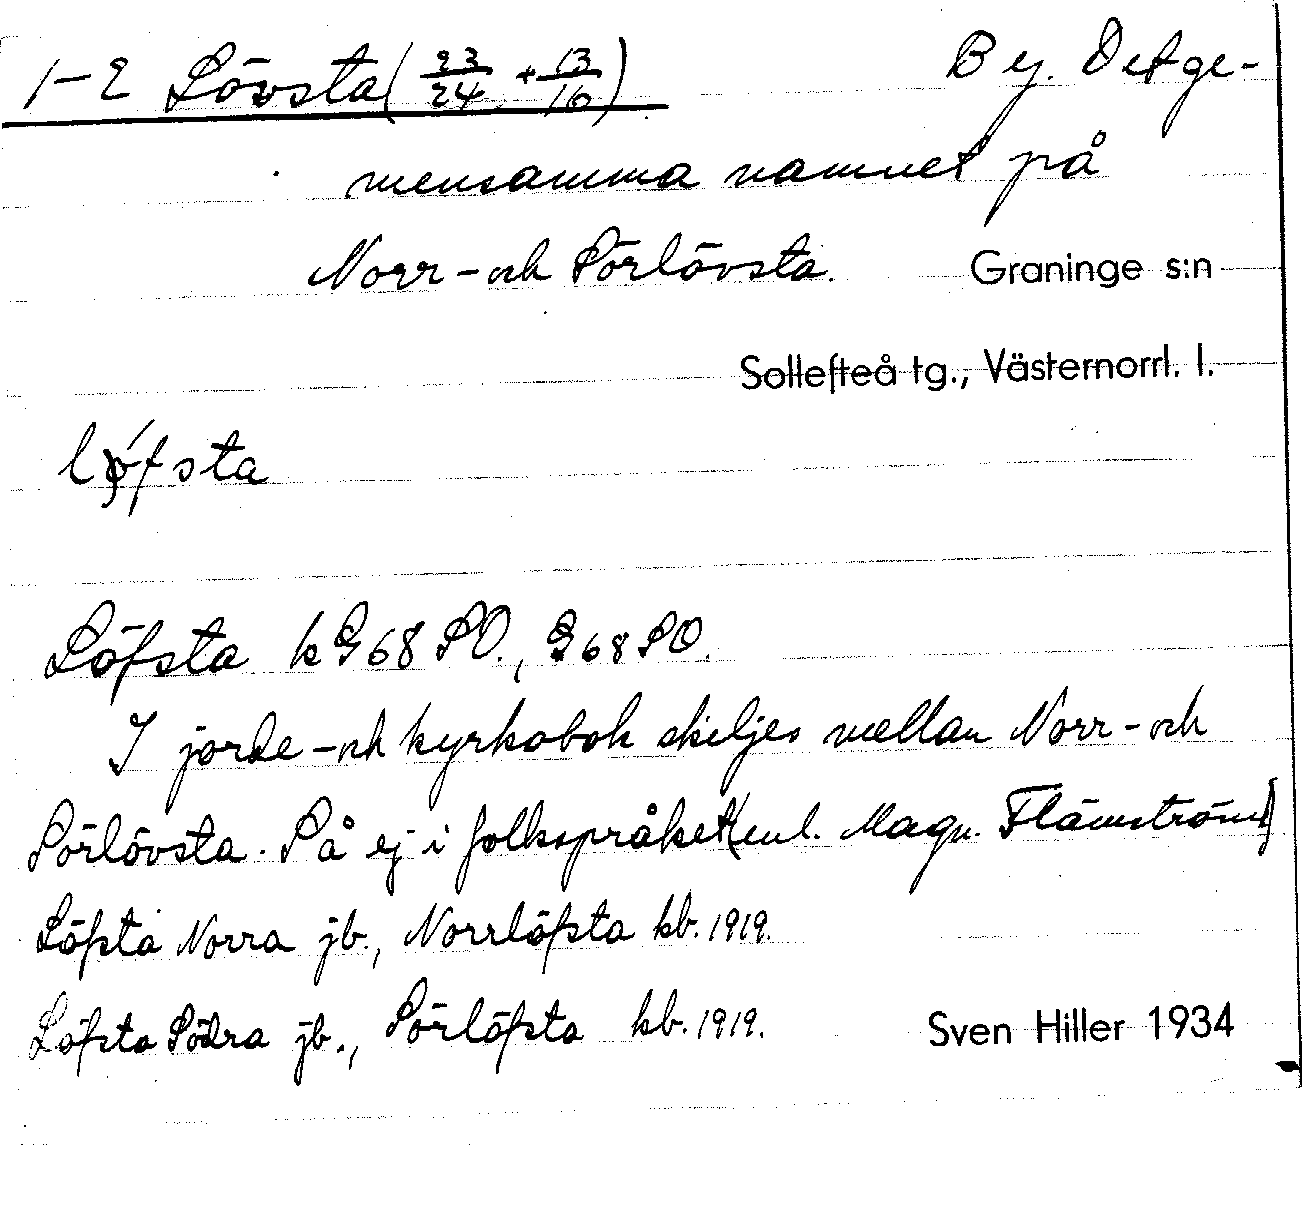 1-2 Lövsta (23/24 + 13/16) By. Det ge-
mensamma namnet på
Norr- och Sörlövsta. Graninge s:n
Sollefteå tg., Västernorrl. l.
Löfsta kG68 SO., G68 SO.
I jorde- och kyrkobok skiljes mellan Norr- och
Sörlövsta. Så ej i folkspråket (enl. Magn. Flämström)
Löfsta Norra jb., Norrlöfsta kb. 1919.
Löfsta Södra jb., Sörlöfsta kb. 1919. Sven Hiller 1934